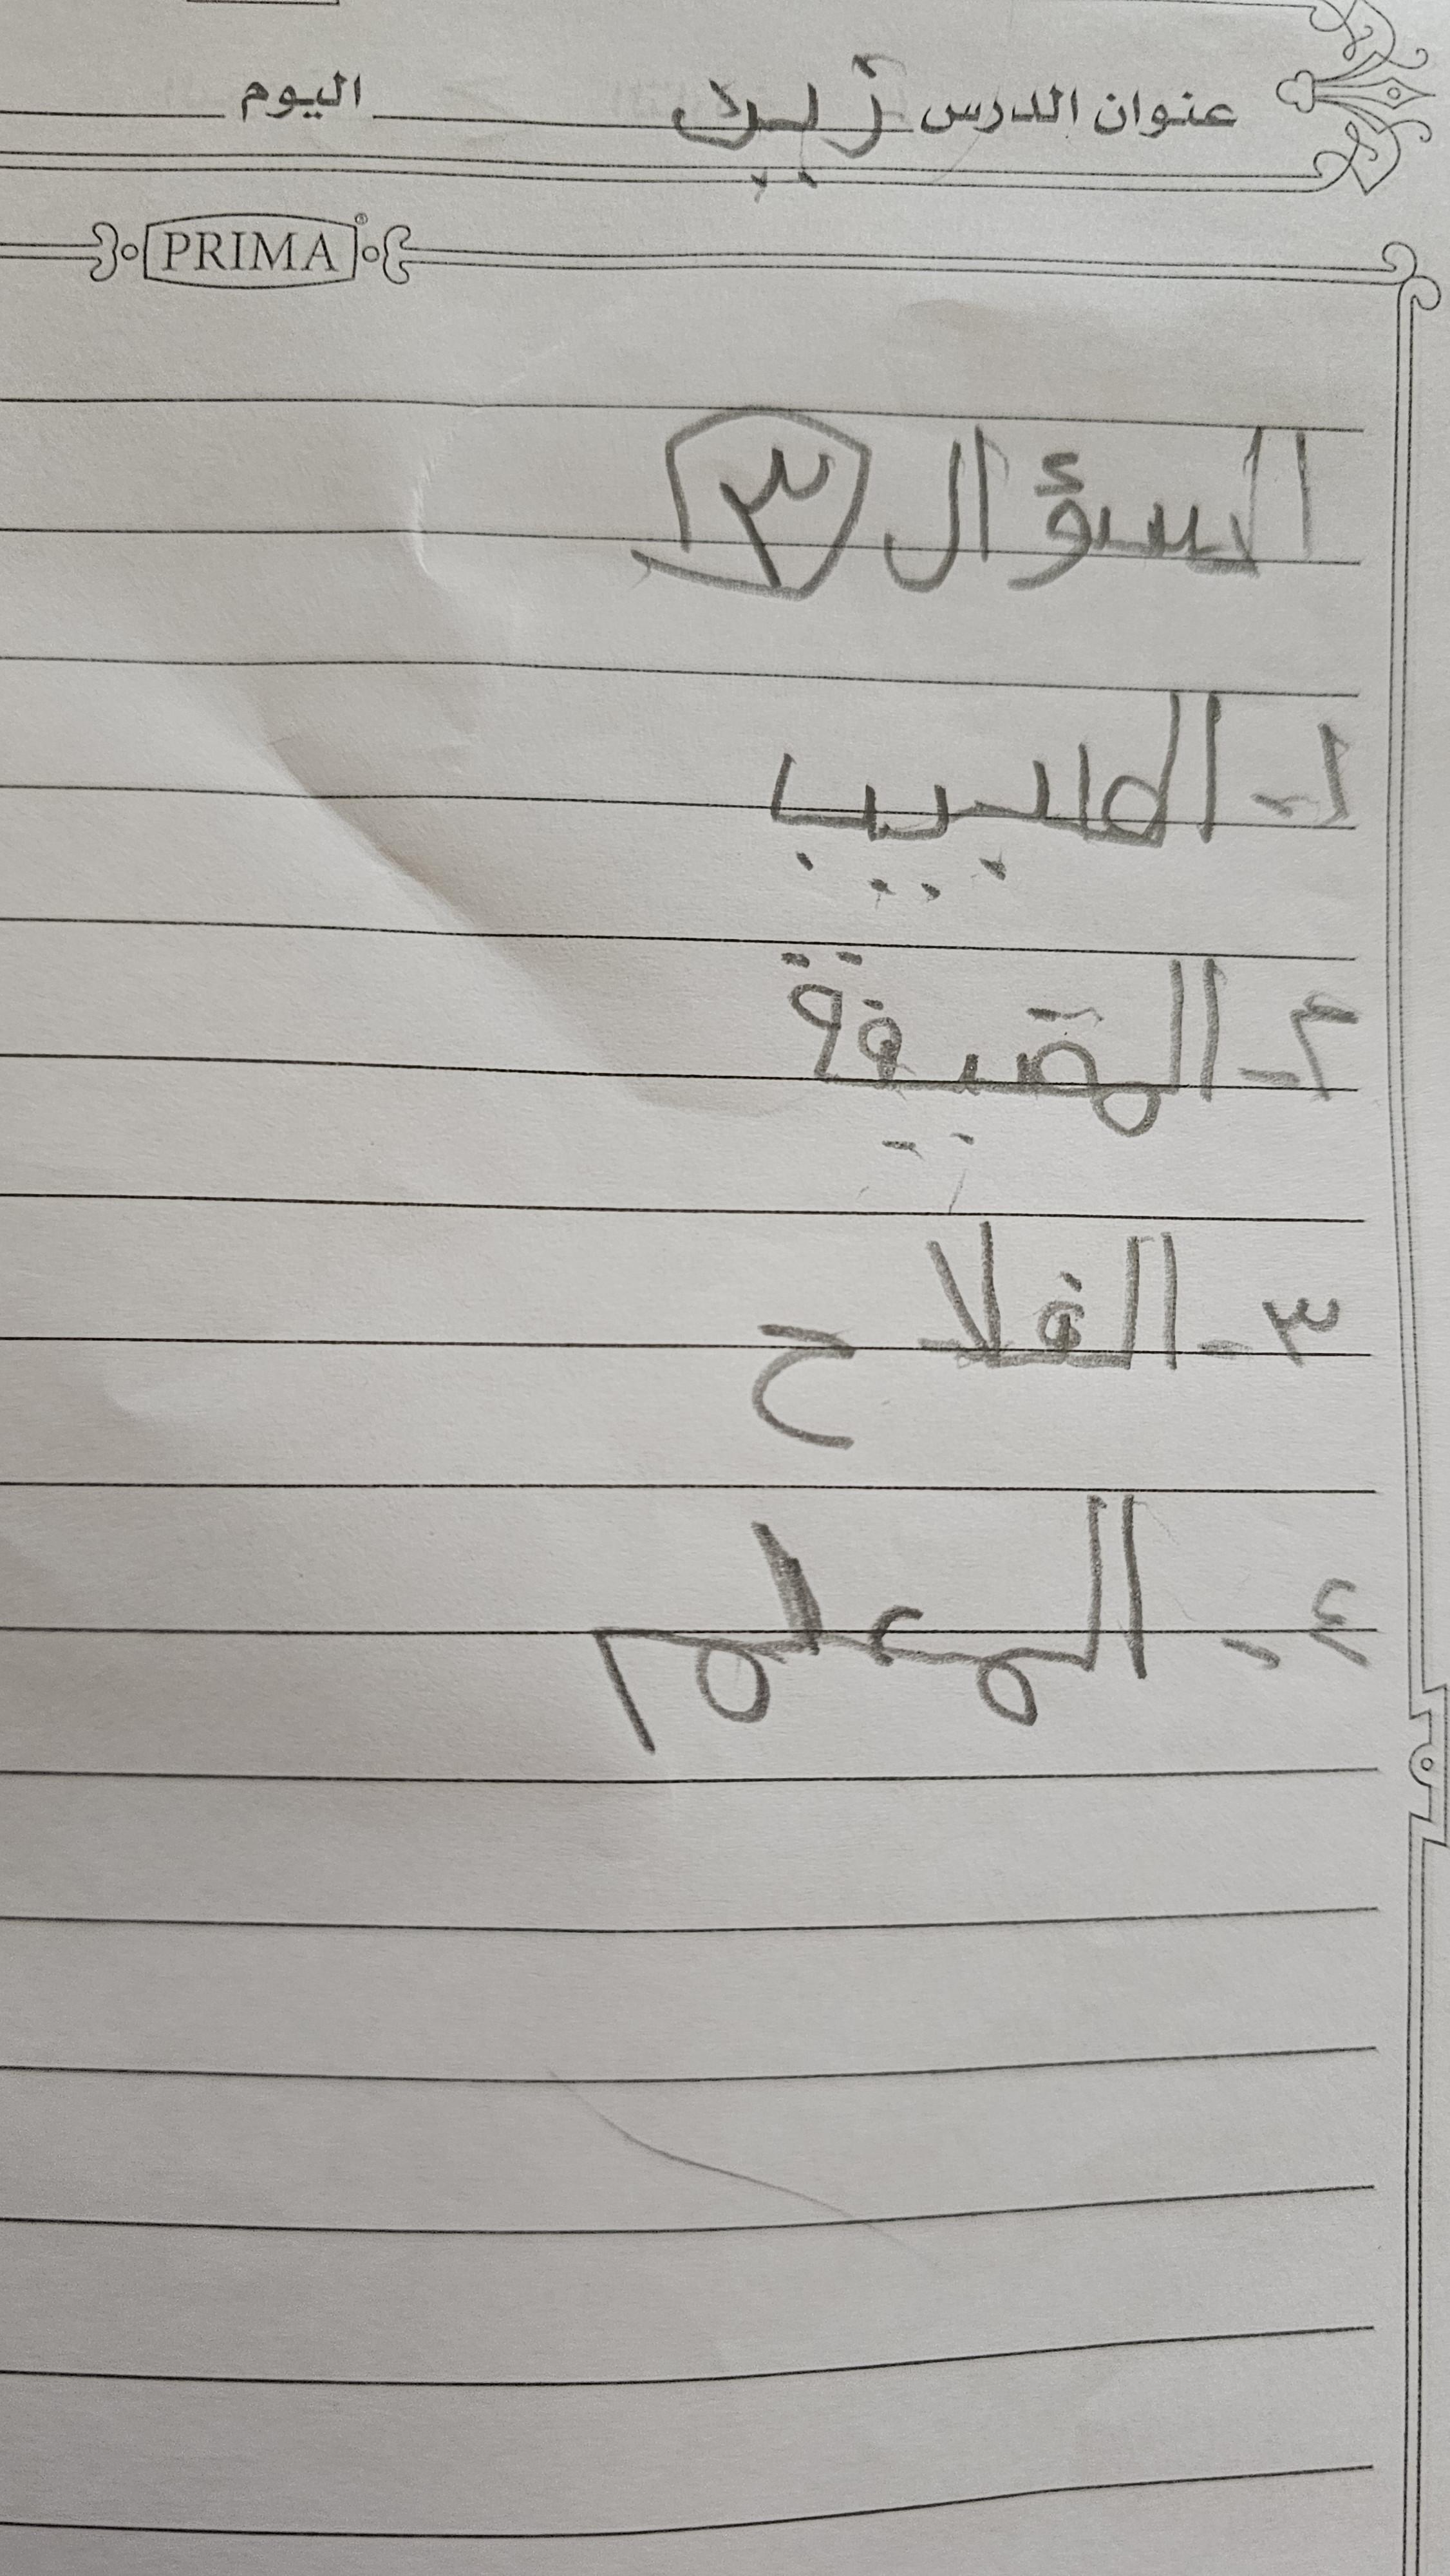 عنوان الدرس زيك اليوم
PRIMA
السؤال ٣
١- الطبيب
٢- المضيفة
٣- الفلاح
٤- المعلم